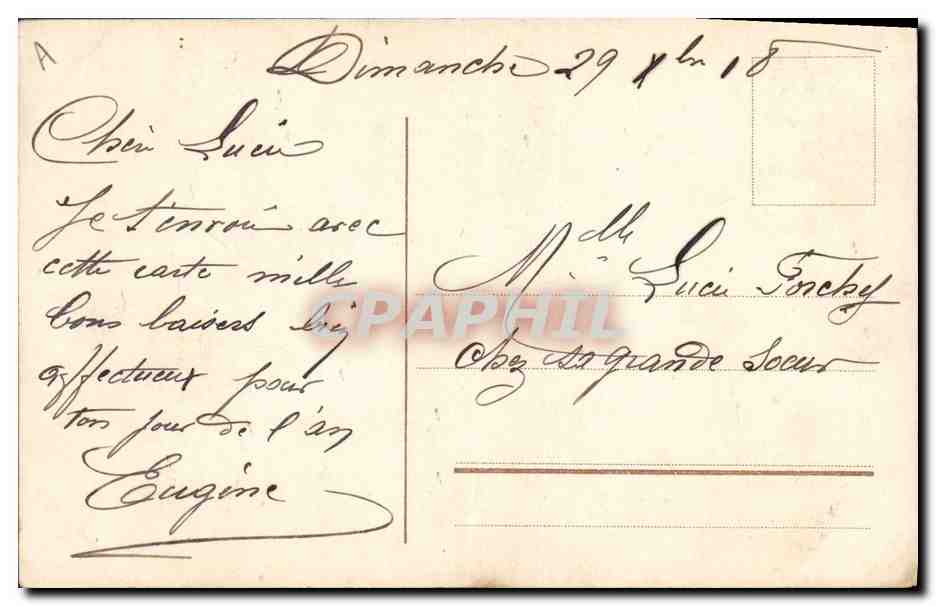 A
Dimanche 29 Xbre 18
Chère Lucie
Je t'envoie avec
cette carte mille
bons baisers bien
affectueux pour
ton jour de l'an
Eugène
Melle Lucie Forchey
Chez sa grande Soeur
CPAPHIL